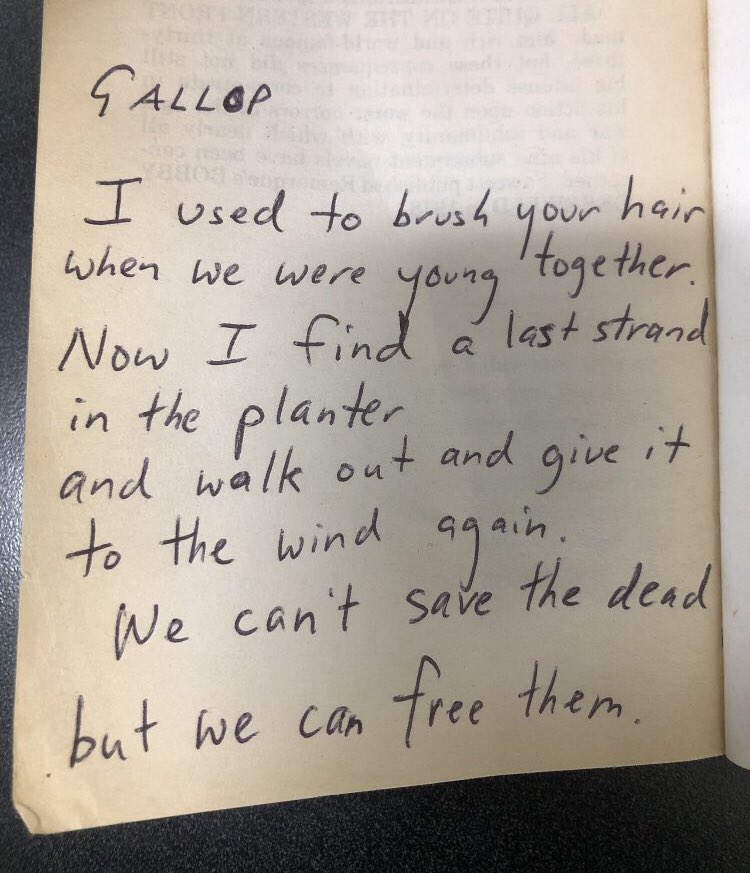 GALLOP
I used to brush your hair
when we were young together.
Now I find a last strand
in the planter
and walk out and give it
to the wind again.
We can't save the dead
but we can free them.